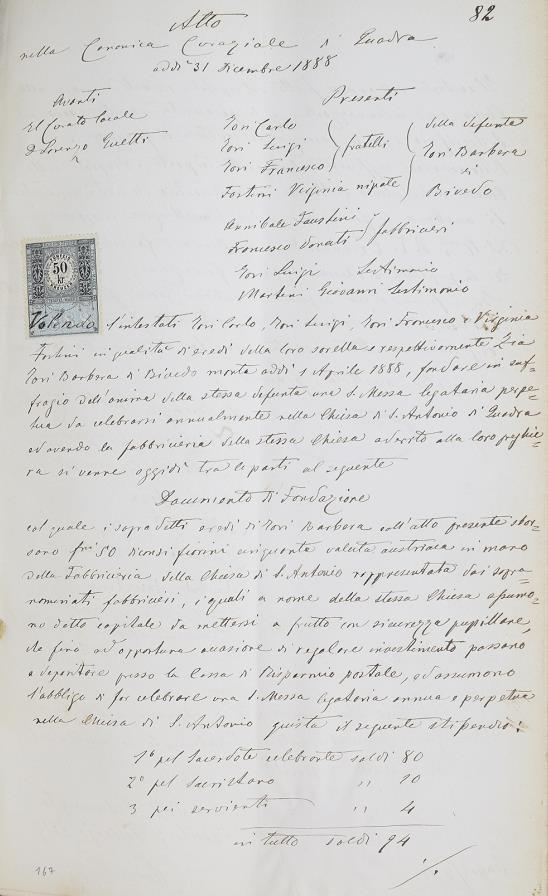 82
Atto
nella Canonica Curaziale di Quadra
addì 31 Dicembre 1888
Avanti
Il Curato locale
D Lorenzo Guetti
Presenti
Tori Carlo
Tori Luigi
Tori Francesco
fratelli
Fortini Virginia nipote
della defunta
Tori Barbera
di
Bivedo
Annibale Faustini
Francesco Donati
fabbricieri
Tori Luigi Testimonio
Martini Giovanni Testimonio
50
kr
Volendo l'intestati Tori Carlo, Tori Luigi, Tori Francesco e Virginia
Fortini in qualità di eredi della loro sorella e respettivamente Zia
Tori Barbera di Bivedo morta addì 1 Aprile 1888, fondare in suf=
fragio dell'anima della stessa defunta una S. Messa legataria perpe=
tua da celebrarsi annualmente nella Chiesa di S. Antonio di Quadra
ed avendo la fabbricieria della stessa Chiesa aderito alla loro preghie=
ra si venne oggidì tra le parti al seguente
Documento di Fondazione
col quale i sopradetti eredi di Tori Barbera coll'atto presente sbor=
sano fni 50 diconsi fiorini cinquanta valuta austriaca in mano
della Fabbricieria della Chiesa di S. Antonio rappresentata dai sopra=
nominati fabbricieri, i quali a nome della stessa Chiesa assumo=
no detto capitale da mettersi a frutto con sicurezza pupillare,
che fino ad opportuna occasione di regolare investimento passano
a depositare presso la Cassa di Risparmio postale, ed assumono
l'obbligo di far celebrare una S. Messa legataria annua e perpetua
nella Chiesa di S. Antonio giusta il seguente stipendio:
1º pel Sacerdote celebrante soldi 80
2º pel Sacristano " 10
3 pei servienti " 4
in tutto soldi 94
./.
167